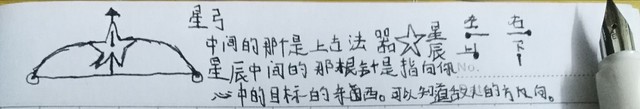 星弓
中间的那个是上古法器 星辰 左上 右下
星辰中间的那根针是指向你
心中的目标的东西。可以知道敌人的方向。
No.